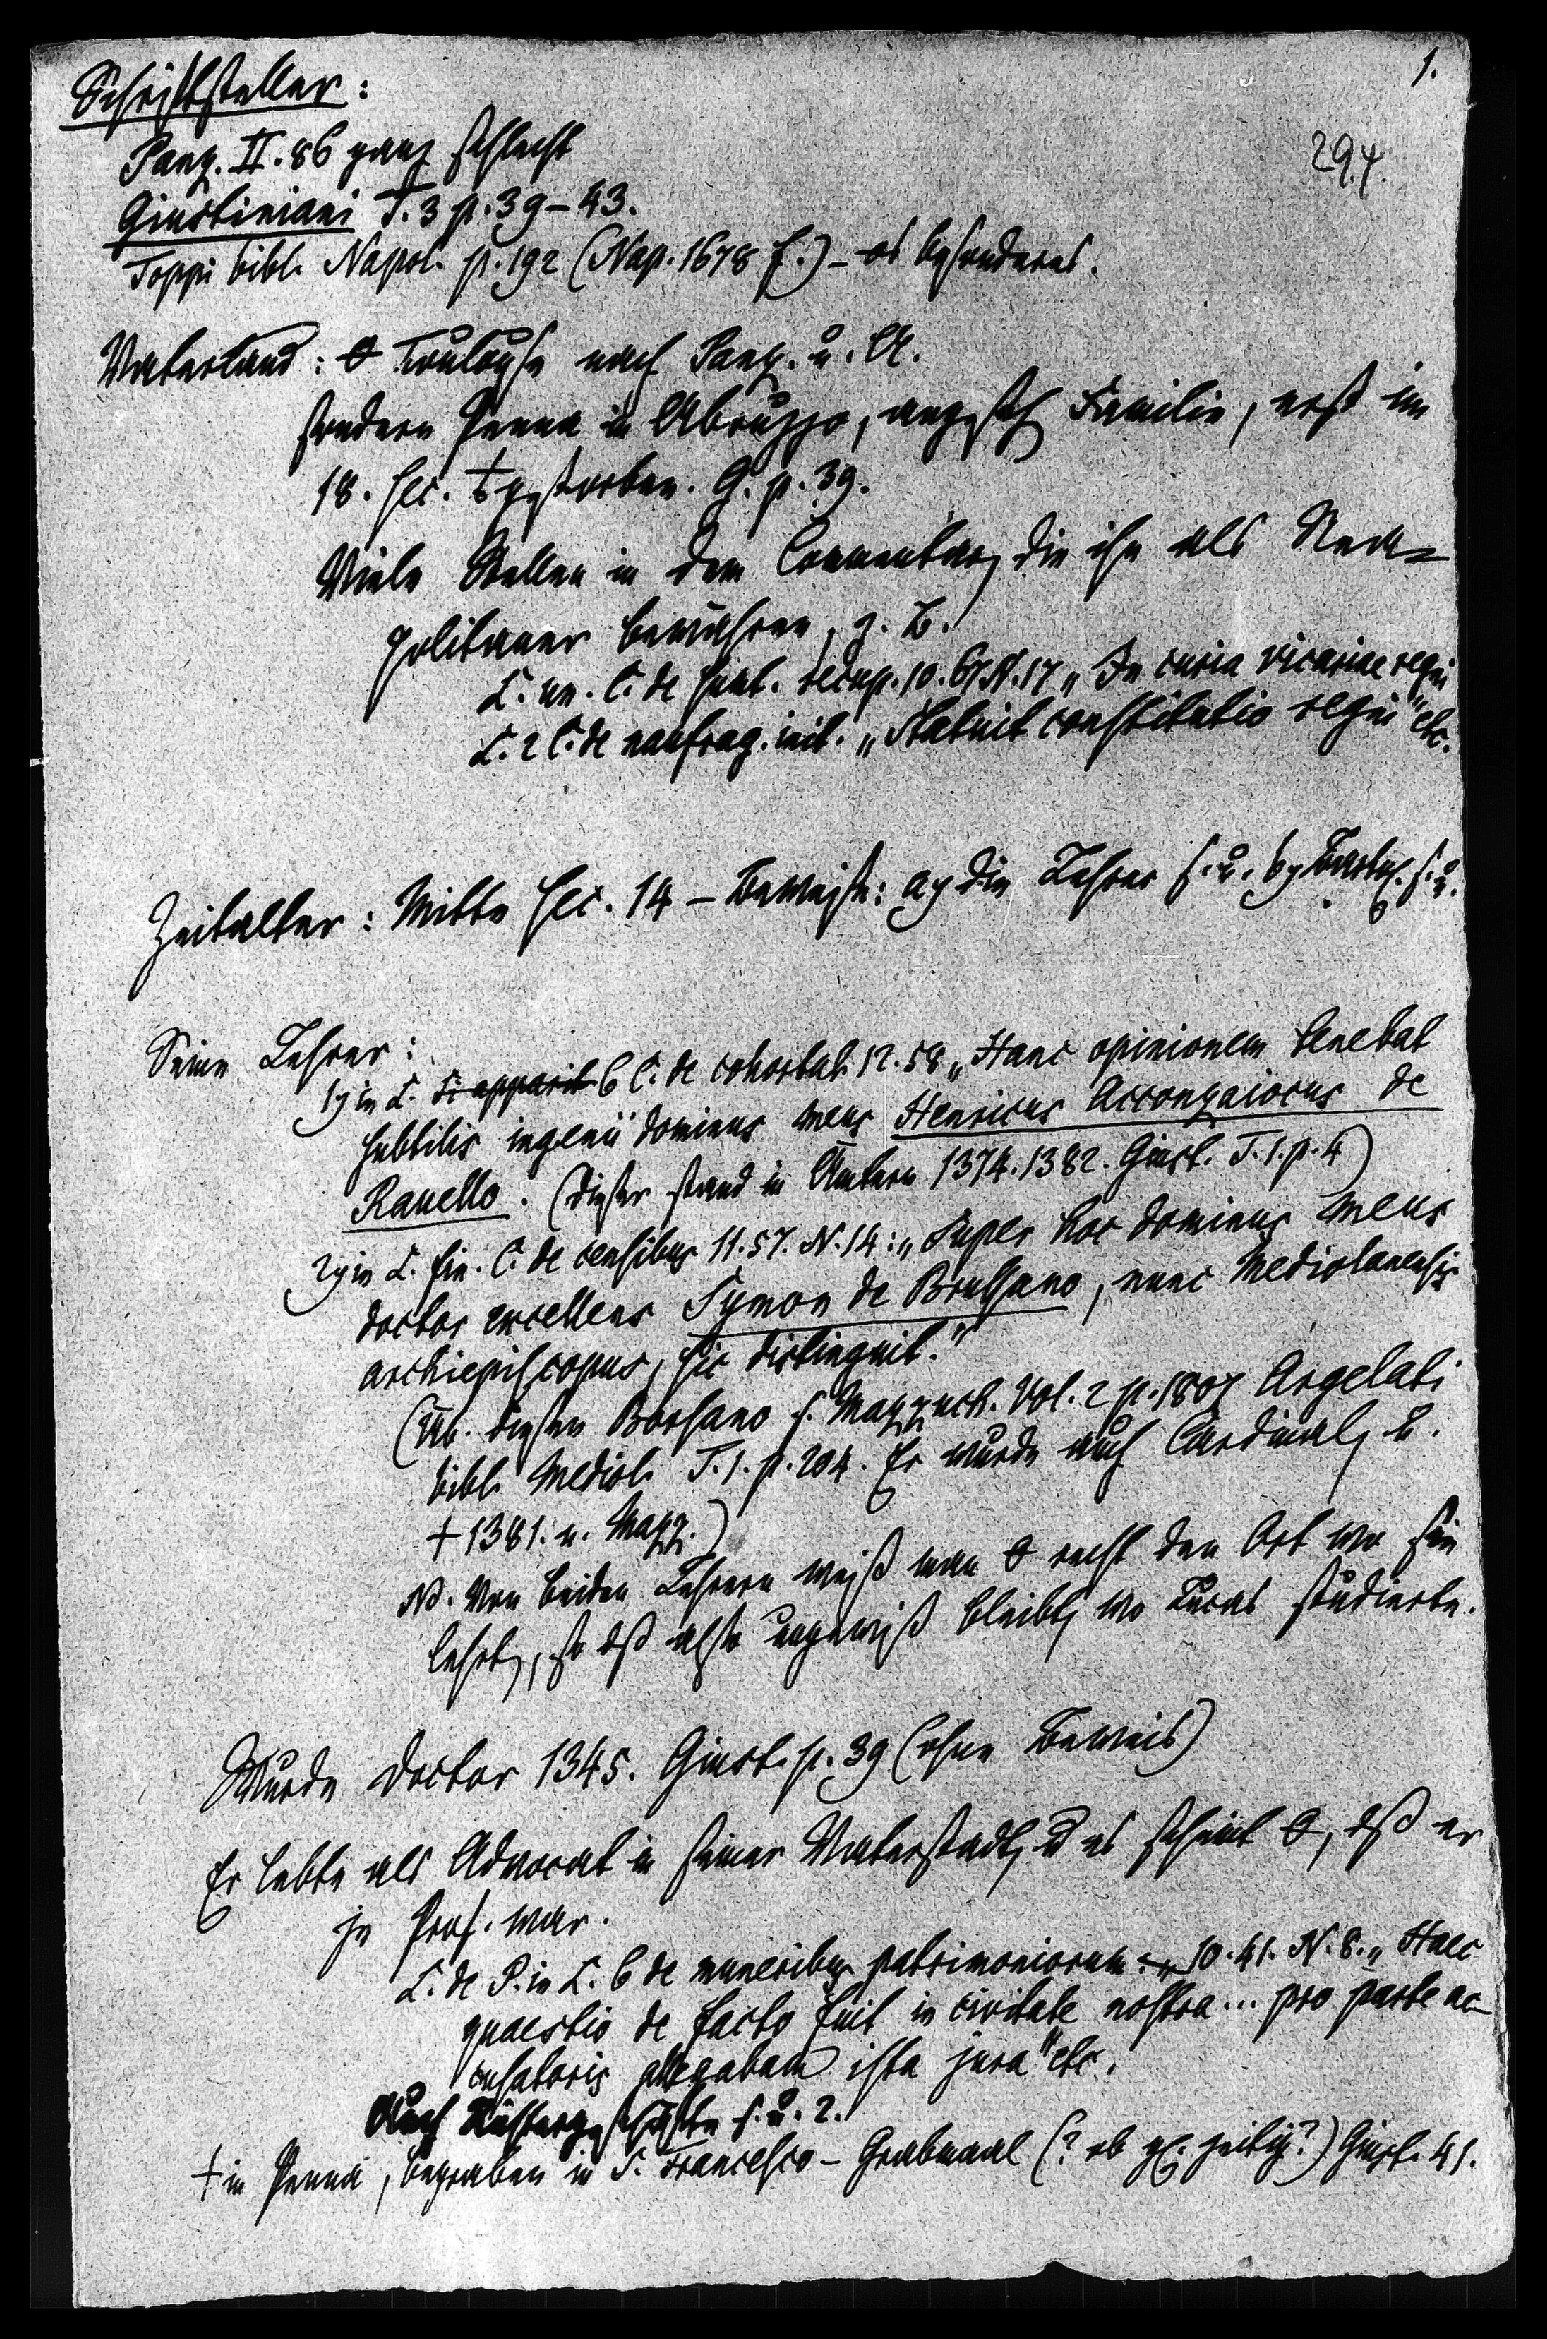 1.
294.
Schriftsteller:
Panz. II. 86 ganz schlecht
Giustiniani T. 3 p. 39-43.
Toppi bibl. Napol. p. 192 (Nap. 1678 f.) - besonderes.
Vaterland: Toulouse nach Panz. u. A.
sondern Penna in Abruzzo, Familie, erst im
18. sec. gestorben. G. p. 39.
Viele Stellen in dem Commentar, die ihn als Nea=
politaner bewähren, z. B.
L. un. C. de recup. 10. N. 17 „In curia vicariae regni
L. 2 C. de naufrag. init. „Statuit constitutio regni" etc.
Zeitalter: Mitte sec. 14 - Beweise: a) die Lehrer s. u. b) s. u.
Seine Lehrer:
1) in L. Si apparit. 6 C. de cohortal. 12. 58 „Hanc opinionem tenebat
subtilis ingenii dominus meus Henricus Acconzaiocus de
Ravello. (dieser stand in Ämtern 1374. 1382. Giust. T. 1. p. 4)
2) in L. fin. C. de censibus 11. 57. N. 14: „Super hoc dominus meus
doctor excellens Symon de Brussano, nunc Mediolanensis
archiepiscopus, sic distinguit."
(Üb. diesen Borsano s. Mazzuch. Vol. 2 p. 1807 Argelati
bibl. Mediol. T. 1. p. 204. Er wurde auch Cardinal, u.
† 1381. n. Mazz.)
NB. Von beiden Lehrern weiß man recht den Ort wo sie
lehrt, so dß also ungewiß bleibt, wo Lucas studierte.
Wurde Doctor 1345. Giust. p. 39 (ohne Beweis)
Er lebte als Advocat in seiner Vaterstadt, u es scheint, dß er
je Prof. war.
L. de P. in L. 6 de muneribus patrimoniorum: 10. 41. N. 8. „Haec
quaestio de facto fuit in civitate nostra ... pro parte ac-
cusatoris allegabam ista jura" etc.
Auch s. u. 2.
† in Penna, begraben in S. Francesco - Grabmal (? ob gl. zeitig?) Giust. 41.